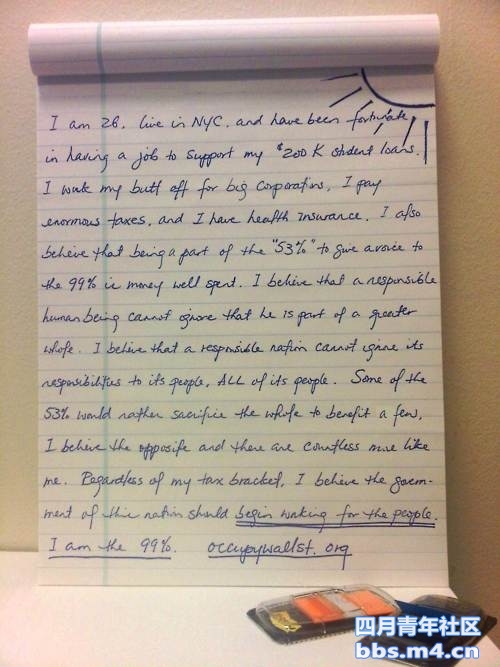 I am 28, live in NYC, and have been fortunate
in having a job to support my $200K student loans.
I work my butt off for big corporations, I pay
enormous taxes, and I have health insurance. I also
believe that being a part of the "53%" to give a voice to
the 99% is money well spent. I believe that a responsible
human being cannot ignore that he is part of a greater
whole. I believe that a responsible nation cannot ignore its
responsibilities to its people, ALL of its people. Some of the
53% would rather sacrifice the whole to benefit a few,
I believe the opposite and there are countless more like
me. Regardless of my tax bracket, I believe the govern-
ment of this nation should begin working for the people.
I am the 99%. occupywallst.org
四月青年社区
bbs.m4.cn